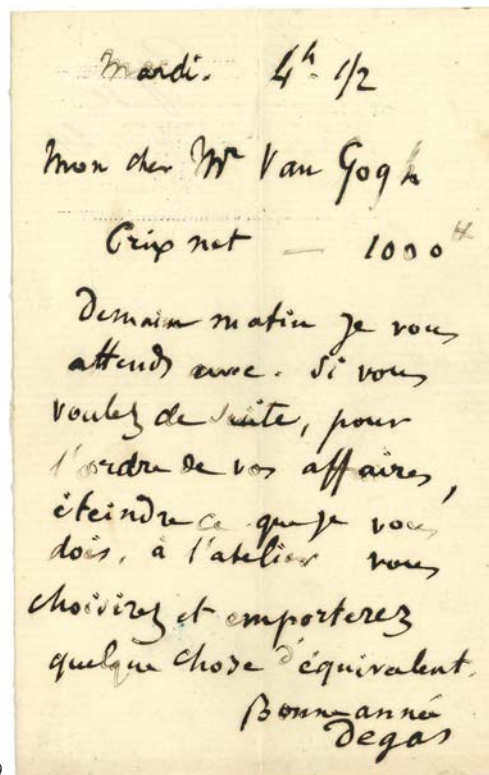 Mardi. 4h. 1/2
Mon cher Mr Van Gogh
Prix net — 1000 #
Demain matin je vous
attends avec. Si vous
voulez de suite, pour
l'ordre de vos affaires,
éteindre ce que je vous
dois, à l'atelier vous
choisirez et emporterez
quelque chose d'équivalent.
Bonne année
Degas